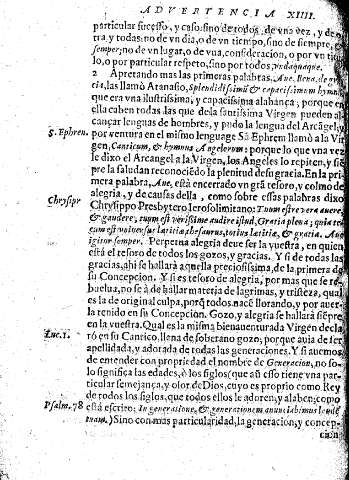 ADVERTENCIA XIIII.
particular sucesso, y caso: sino de todos, de vna vez, y de o-
tra, y todas: no de vn dia, o de vn tiempo, sino de siempre,
semper; no de vn lugar, o de vna, consideracion, o por vn ti
o, o por particular respeto, sino por todos,
2 Apretando mas las primeras palabras, Aue, llena de gra
cia, las llamò Atanasio, Splendidissimũ & capacissimum hymnũ
que era vna ilustrissima, y capacissima alabança; porque en
ella caben todas las que de la santissima Virgen pueden al-
cançar lenguas de hombres, y pudo la lengua del Arcãgel, y
S. Ephren. por ventura en el mismo lenguage Sã Ephren llamò a la Vir
gen, Canticum, & hymnũ Angelorum: porque lo que vna vez
le dixo el Arcangel a la Virgen, los Angeles lo repiten, y siẽ
pre la saludan reconociẽdo la plenitud de su gracia. En la pri
mera palabra, Aue, està encerrado vn grã tesoro, y colmo de
alegria, y de causas della, como sobre essas palabras dixo
Chrysipr Chrysippo Presbytero Ierosolimitano: Tuum est re vera auere,
& gaudere, tuum est verissime audire illud, Gratia plena; quia te
cum est vniuersus lætitiæ thesaurus, totius lætitiæ, & gratiæ. Aue
igitor semper. Perpetua alegria deue ser la vuestra, en quien
està el tesoro de todos los gozos, y gracias. Y si de todas las
gracias, ahi se hallarà aquella preciosissima, de la primera de
su Concepcion. Y si es tesoro de alegria, por mas que se re-
buelua, no se à de hallar materia de lagrimas, y tristeza, qual
es la de original culpa, porq̃ todos nacẽ llorando, y por auer-
la tenido en su Concepcion. Gozo, y alegria se hallarà siẽpre
en la vuestra. Qual es la misma bienauenturada Virgen decla
Luc. 1. rò en su Cantico, llena de soberano gozo; porque auia de ser
apellidada, y adorada de todas las generaciones. Y si auemos
de entender con propriedad el nombre de Generacion, no so-
lo significa las edades, ò los siglos (que aũ esso tiene vna par-
ticular semejança, y olor de Dios, cuyo es proprio como Rey
de todos los siglos, que todos ellos le adoren, y alaben; como
Psalm. 78 està escrito: In generatione, & generationem annuntiabimus laude
tuam.) Sino con mas particularidad, la generacion, y concep-